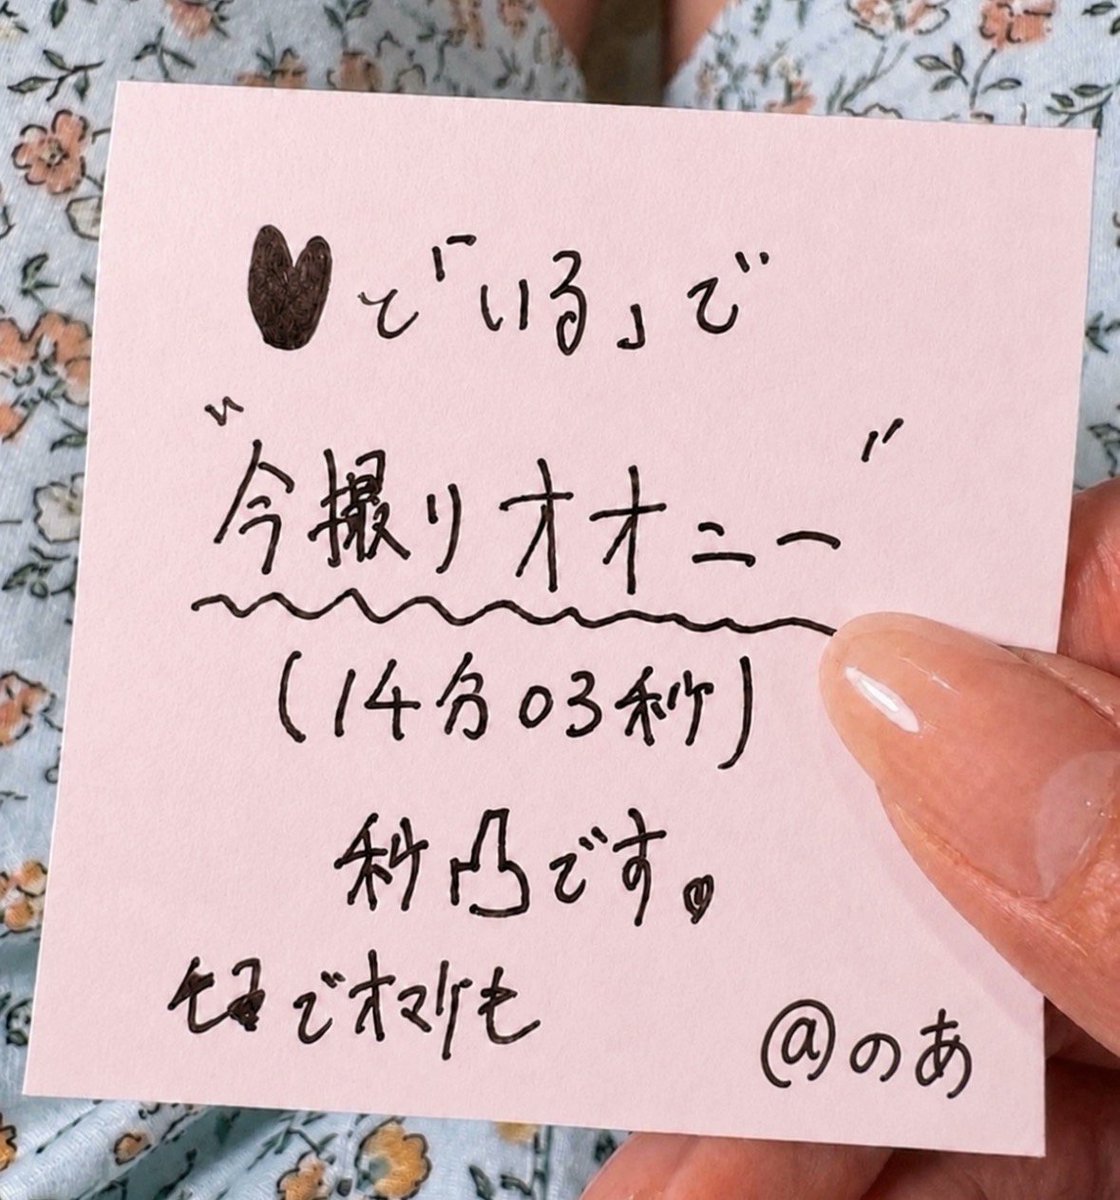 ♥と「いる」で
"今撮りオオニー"
(14分03秒)
秒凸です。
でオマケも
@のあ